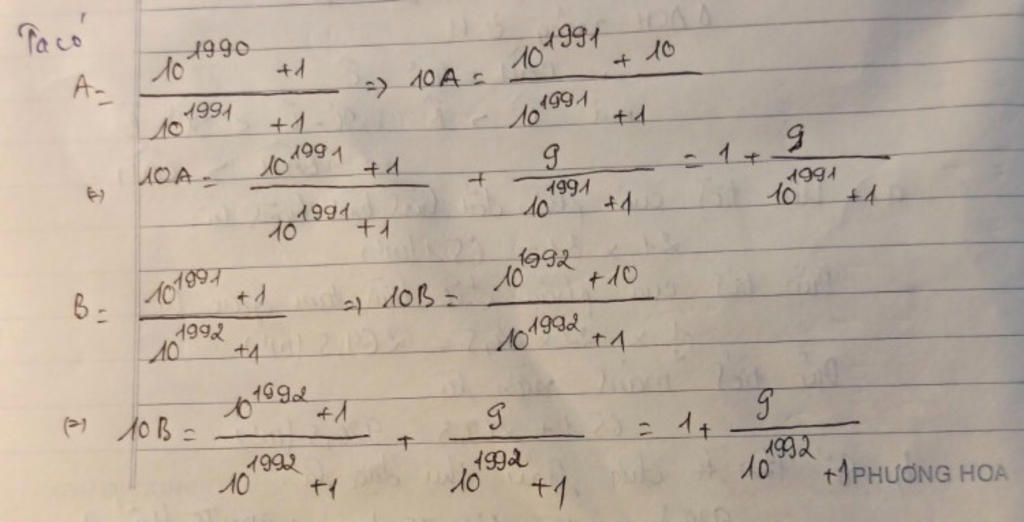 Ta có
A = \frac{10^{1990} + 1}{10^{1991} + 1} => 10A = \frac{10^{1991} + 10}{10^{1991} + 1}
(=) 10A = \frac{10^{1991} + 1}{10^{1991} + 1} + \frac{9}{10^{1991} + 1} = 1 + \frac{9}{10^{1991} + 1}
B = \frac{10^{1991} + 1}{10^{1992} + 1} => 10B = \frac{10^{1992} + 10}{10^{1992} + 1}
(=) 10B = \frac{10^{1992} + 1}{10^{1992} + 1} + \frac{9}{10^{1992} + 1} = 1 + \frac{9}{10^{1992} + 1}
PHƯƠNG HOA